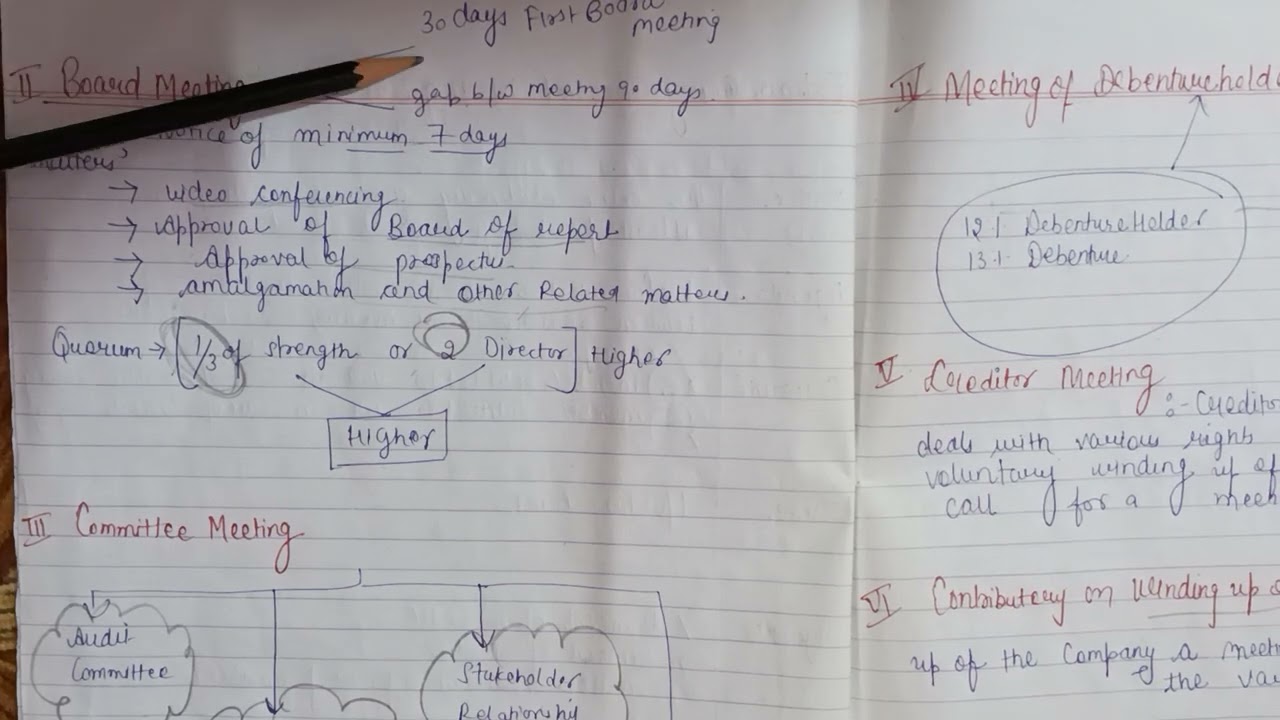 30 days First Board
meeting
II Board Meeting
gap b/w meeting 90 days.
of minimum 7 days
→ video conferencing
→ Approval of Board of report
→ Approval of prospectus
→ amalgamation and other Related matters.
Quorum → [1/3 of strength or 2 Director] Higher
Higher
III Committee Meeting
Audit
Committee
Stakeholder
Relationship
IV Meeting of Debenturehold
12% DebentureHolder
13% Debenture
V Creditor Meeting
:- Creditor
deals with various rights
voluntary winding up of
call for a meet
VI Contributory on winding up
up of the Company a meet
the va